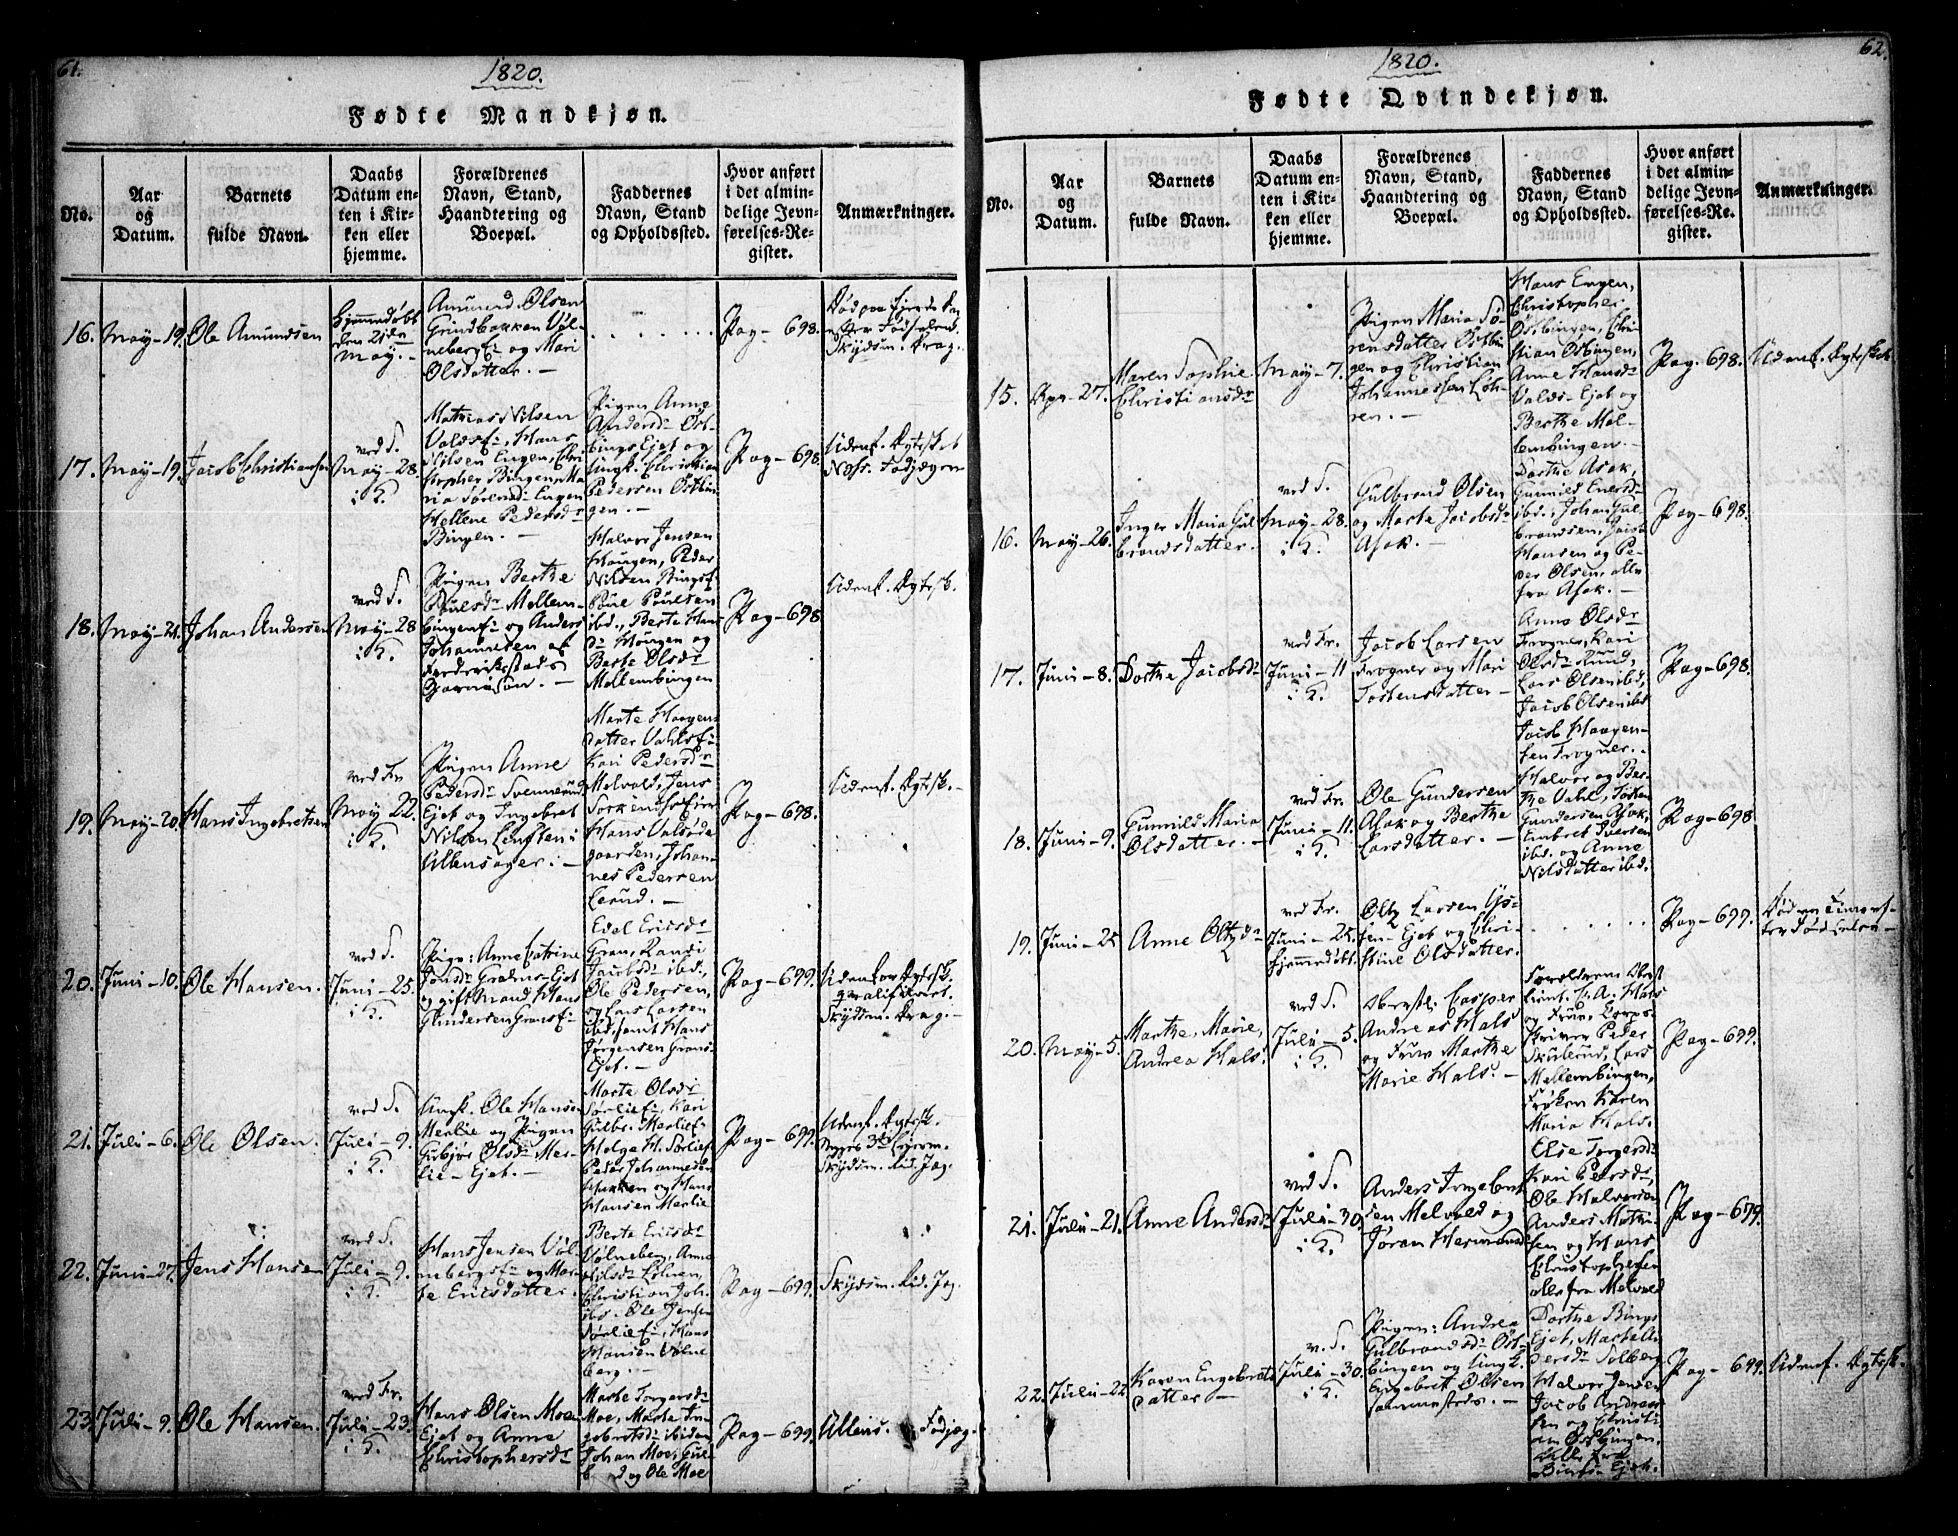 61.
1820.
Fødte Mandkjøn.
No.
Aar
og
Datum.
Barnets
fulde Navn.
Daabs
Datum en-
ten i Kir-
ken eller
hjemme.
Forældrenes
Navn, Stand,
Haandtering og
Boepæl.
Faddernes
Navn, Stand
og Opholdssted.
Hvor anført
i det almin-
delige Jevn-
førelses-Re-
gister.
Anmærkninger.
16.
May - 19.
Ole Amundsen
Hjemmedøbt
den 21de
May. -
Amund Olsen
Grindbakken Vøl-
neberg E: og Mari
Olsdatter. -
Pag - 698.
17.
May - 19.
Jacob Christiansen
ved S.
May - 28.
i K.
Mathias Nilsen
Valds E:, Hans
Nilsen Engen, Chri-
stopher Bingen, Ma-
ria Sørensd: Engen
Hellene Pedersdr
Bingen. -
Pigen Anne
Andersdr Øst-
bings Ejet og
Ungk. Christian
Pedersen Østbin-
gen. -
Pag - 698
Udenf. Ægtesk
18.
May - 21.
Johan Andersen
ved S.
May - 28
i K.
Pigen Berthe
Poulsdr Mellem-
bingen E: og Anders
Johannesen af
Frederikstads
Garnison. -
Halvor Jensen
Haugen, Peder
Nilsen Bings E:
Poul Poulsen
ibd., Berte Hans
dr Haugen og
Berte Olsdr
Mellembingen
Pag - 698
Udenf. Ægtesk.
19.
May - 20.
Hans Ingebretsen
ved Fr.
May 22.
i K.
Pigen Anne
Pedersdr Svennerud
Ejet og Ingebret
Nilsen
Ullensager. -
Marte Haagens
datter Valds E:
Kari Pedersdr
Melvold, Jens
Hans Valsøde-
gaarden, Johan-
nes Pedersen
Lerud. -
Pag - 698.
Udenf. Ægtesk. -
20.
Juni - 10.
Ole Hansen.
ved S.
Juni - 25.
i K.
Pige: Anne Catrine
Jonsdr Grans-Ejet
og gift Mand Hans
Gundersen Grans E:
Edel Ericsdr
Gran, Randi
Jacobsdr ibd.,
Ole Pedersen,
og Lars Larsen
ibd., samt Hans
Jørgensen Grans-
Ejet. -
Pag - 699.
Uden for Ægtesk.
qvalificeret.
Skydsm. Drag. -
21.
Juli - 6.
Ole Olsen.
ved S.
Juli - 9.
i K.
Ungk. Ole Hansen
Merlie og Pigen
Gubjør Olsdr Mer-
lie - Ejet. -
Marte Olsdr
Sørlie E:, Kari
Gulbr. Merlie E:
Helge H. Sørlie E:
Peder Johannesen
Hansen Merlie
Pag - 699.
Udenf. Ægtesk.
Skydsm. Rid. Jag.
22.
Juni - 27.
Jens Hansen
ved S.
Juli - 9.
i K.
Hans Jensen Vøl-
nebergs E: og Mar-
te Ericsdatter.
Berte Ericsdr
Vølneberg, Anne
Nilsdr Løhren,
Christian Joh.
ibd. Ole Jensen
Sørlie E:, Hans
Hansen Vølne-
berg. -
Pag - 699.
Skydsm. Rid. Jag.
23.
Juli - 9.
Ole Hansen.
ved Fr.
Juli - 23.
i K.
Hans Olsen Moe
Ejet og Anne
Christophersdr
Marte Torgersdr
Moe, Marthe In-
gebretsdr ibiden
Johan Moe, Gul-
og Ole Moe
Pag - 699.
Ullens. Fodjæg.
62.
1820.
Fødte Qvindekjøn.
No.
Aar
og
Datum.
Barnets
fulde Navn.
Daabs
Datum en-
ten i Kir-
ken eller
hjemme.
Forældrenes
Navn, Stand,
Haandtering og
Boepæl.
Faddernes
Navn, Stand
og Opholdssted.
Hvor anført
i det almin-
delige Jevn-
førelses-Re-
gister.
Anmærkninger.
15.
Apr - 27.
Maren Sophie
Christiansdr
May - 7.
Pigen Maria Sø-
rensdatter Østbin-
gen og Christian
Johannessen Løh-
ren. -
Hans Engen,
Christopher
Østbingen, Chri-
stian Østbingen,
Anne Hansdr
Valds-Ejet og
Berthe Mel-
lembingen.
Pag. 698.
Udenf. Ægtesk.
16.
May - 26.
Inger Maria Gul-
brandsdatter.
ved S.
May - 28.
i K.
Gulbrand Olsen
og Marte Jacobsdr
Asak. -
Dorthe Asak,
Gunnild Enersdr
ibd., Johan Gul-
brandsen, Jacob
Hansen og Pe-
der Olsen, alle
fra Asak. -
Pag - 698.
17.
Juni - 8.
Dorthe Jacobsdr
ved Fr.
Juni - 11
i K.
Jacob Larsen
Frogner og Mari
Tostensdatter -
Anne Olsdr
Frogner, Kari
Olsdr Rud,
Lars Olsen ibd,
Jacob Olsen ibd
Jacob Haagen-
sen Frogner. -
Pag - 698.
18.
Juni - 9.
Gunnild Maria
Olsdatter. -
ved Fr.
Juni - 11.
i K.
Ole Gundersen
Asak og Berthe
Larsdatter. -
Halvor og Ber-
the Vahl, Tosten
Gundersen Asak,
Embret Iversen
ibd. og Anne
Nilsdatter ibd.
Pag - 698
19.
Juni - 25
Anne
ved Fr.
Juni - 25.
hjemmedøbt.
Larsen
Ejet og Chri-
stine Olsdatter.
Pag - 699.
20.
May - 5.
Marthe, Marie,
Andrea Hals.
ved S.
Juli - 5.
i K.
Casper
Andreas Hals
og Frue Marthe
Marie Hals. -
Forældrene Obrst
Lieut. C. A. Hals
og Frue, Sorens-
skriver Peder
Skulerud, Lars
Mellembingen,
Frøken Karen
Maria Hals.
Pag - 699.
21.
Juli - 21.
Anne Andersdr
ved S.
Juli - 30.
i K.
Anders Ingebret-
sen Melvold og
Jøran Hermansdr
Else Torgersdr
Kari Persdr,
Ole Halvorsen
Anders Mathi-
sen og Hans
Christophersen
alle fra Melvold
Pag - 699.
22.
Juli - 22
Karen Engebrets-
datter -
v. S.
Juli - 30.
i K.
Pigen: Andrea
Gulbrandsdr Øst-
bingen og Ungk.
Engebret Olsen
sammesteds. -
Dorthe Bings
Ejet, Marthe An-
dersdr Solberg,
Halvor Jensen
Jacob Andreas-
sen og Christi-
an Østbingen.
Alle fra
Bings-Ejet.
Pag - 699.
Udenf. Ægtesk.